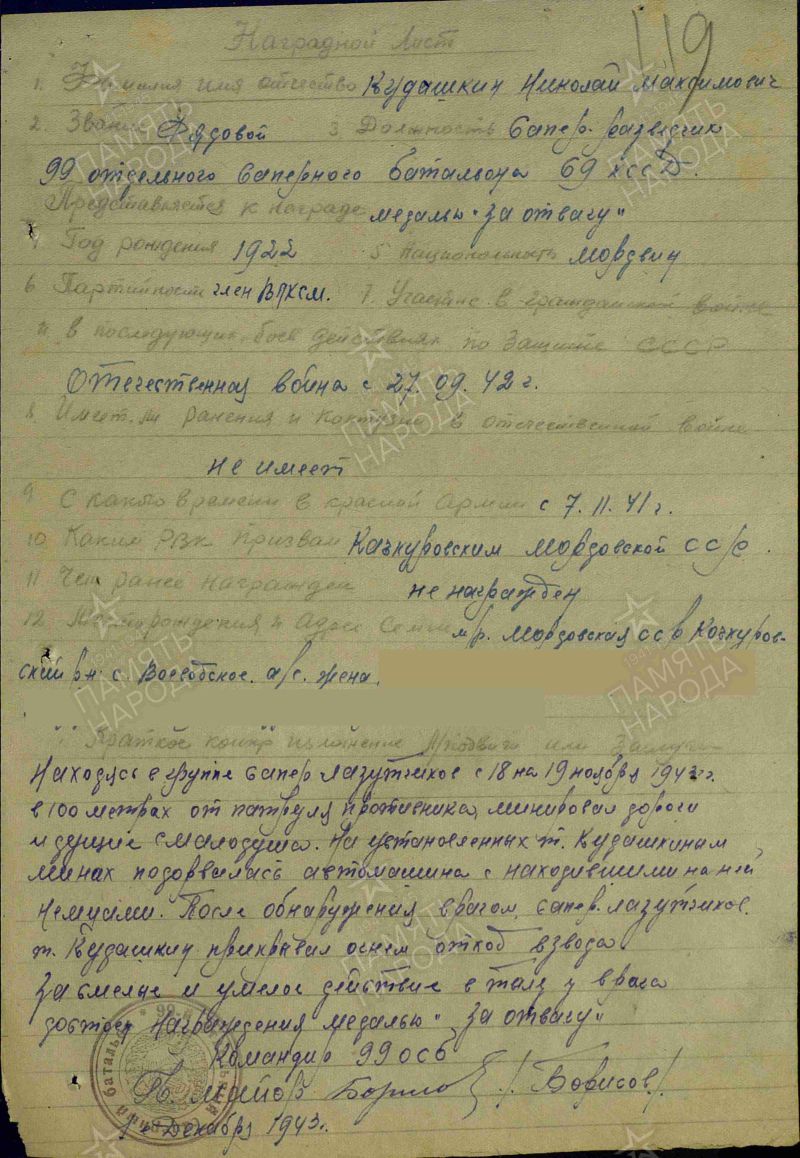 119
Наградной Лист
1. Фамилия имя отчество Кудашкин Николай Максимович
2. Звание Рядовой 3 Должность Сапер-разведчик
99 отдельного саперного батальона 69 кссд.
Представляется к награде медалью "За отвагу"
4 Год рождения 1922 5 Национальность мордвин
6 Партийность член ВЛКСМ. 7. Участие в гражданской войне
и в последующих боев действиях по защите СССР
Отечественная война с 27.09.42 г.
8 Имеет ли ранения и контузии в отечественной войне
не имеет
9 С какого времени в красной Армии с 7.11.41 г.
10 Каким РВК призван Качкуровским Мордовской ССР.
11 Чем ранее награжден не награжден
12 рождения и Адрес Семьи Мордовская Качкуров-
ский р-н с. жена.
Краткое конкр изложение подвига или заслуги
Находясь в группе сапер лазутчиков с 18 на 19 ноября 1943 г.
в 100 метрах от патруля противника, минировал дороги
идущие с Малодуша. На установленных т. Кудашкиным
минах подорвалась автомашина с находившими на ней
немцами. После обнаружения врагом, сапер-лазутчиков
т. Кудашкин прикрывал огнем отход взвода
За смелые и умелое действие в тылу у врага
достоен награждения медалью "За отвагу"
Командир 99 осб
майор /Борисов/
Декабря 1943 г.
ПАМЯТЬ НАРОДА
ПАМЯТЬ НАРОДА
ПАМЯТЬ НАРОДА
ПАМЯТЬ НАРОДА
ПАМЯТЬ НАРОДА